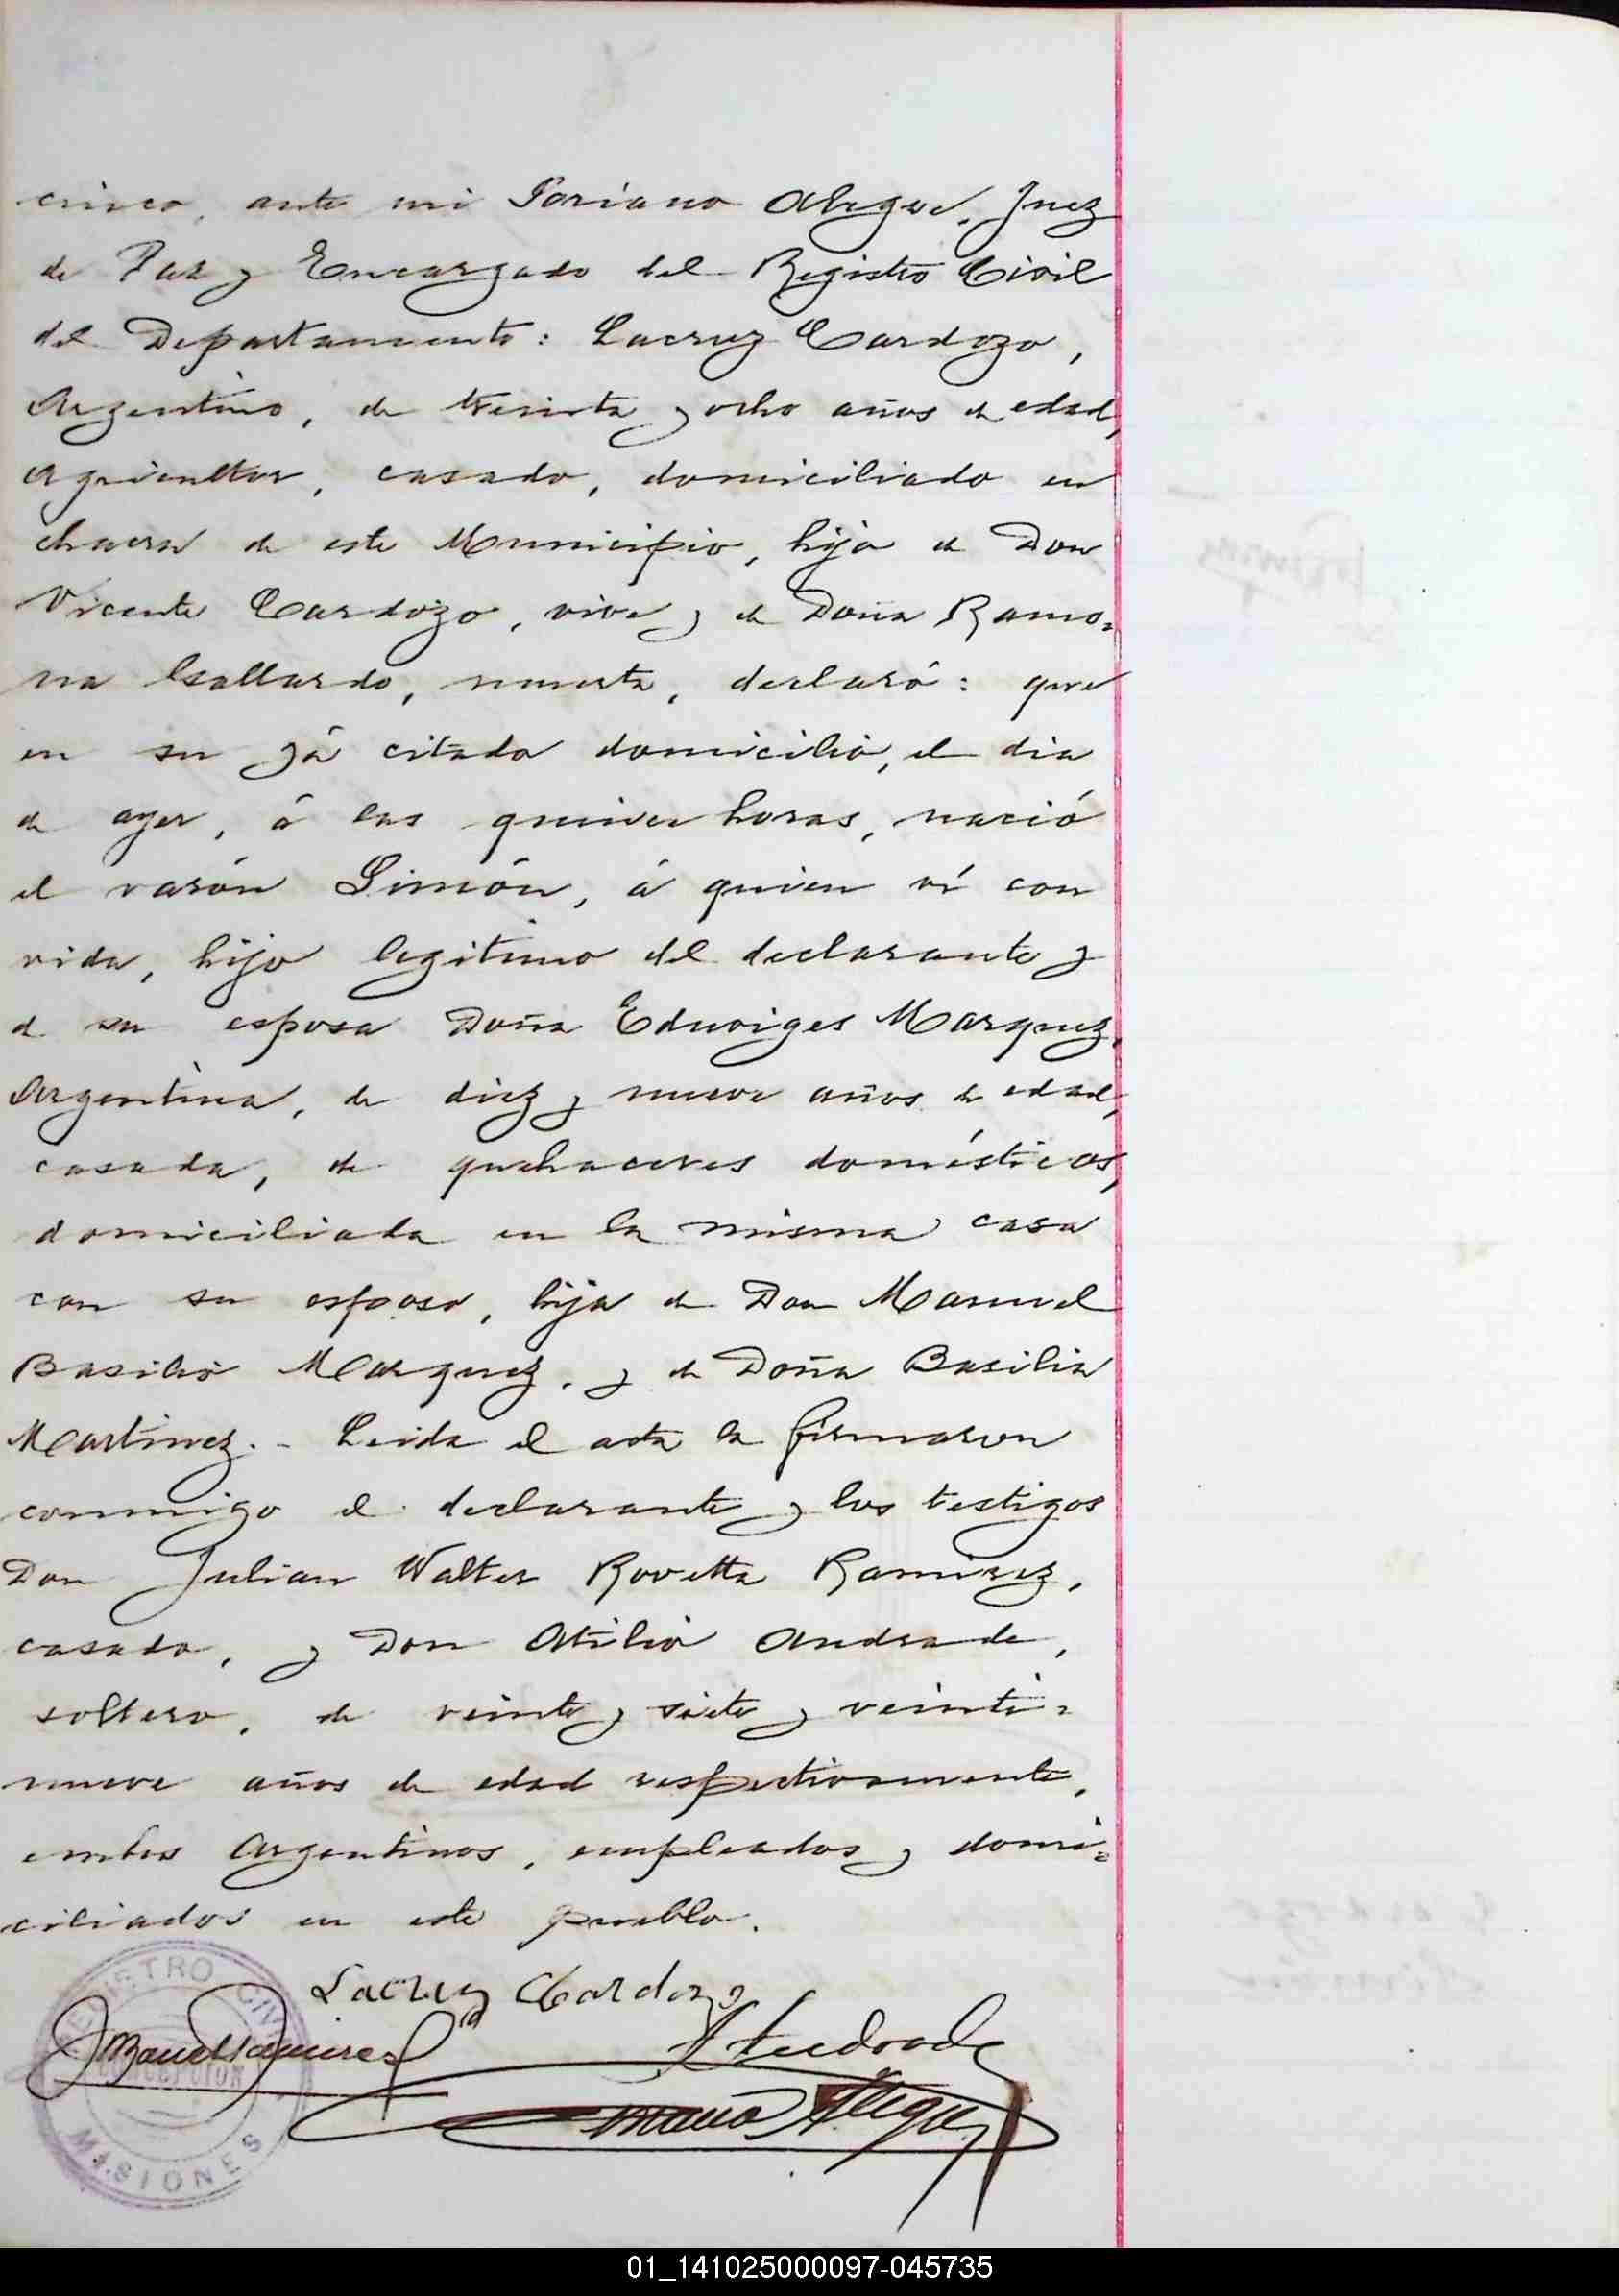 cinco, ante mi Soriano Alegre, Juez
de Paz y Encargado del Registro Civil
del Departamento: Lacruz Cardozo,
Argentino, de treinta y ocho años de edad,
agricultor, casado, domiciliado en
chacra de este Municipio, hijo de Don
Vicente Cardozo, vive y de Doña Ramo=
na Gallardo, muerta, declaró: que
en su yá citado domicilio, el dia
de ayer, á las quince horas, nació
el varón Simón, á quien ví con
vida, hijo legitimo del declarante y
de su esposa Doña Eduviges Marquez,
Argentina, de diez y nueve años de edad,
casada, de quehaceres domésticos,
domiciliada en la misma casa
con su esposo, hija de Don Manuel
Basilio Marquez, y de Doña Basilia
Martinez.- Leida el acta la firmaron
conmigo el declarante y los testigos
Don Julian Walter Rovetta Ramirez,
casado, y Don Atilio Andrade,
soltero, de veinte y siete y veinti=
nueve años de edad respectivamente,
ambos Argentinos, empleados y domi=
ciliados en este pueblo.
Lacruz Cardozo
Andrade
Alegre
REGISTRO CIVIL
CONCEPCION
MISIONES
01_141025000097-045735